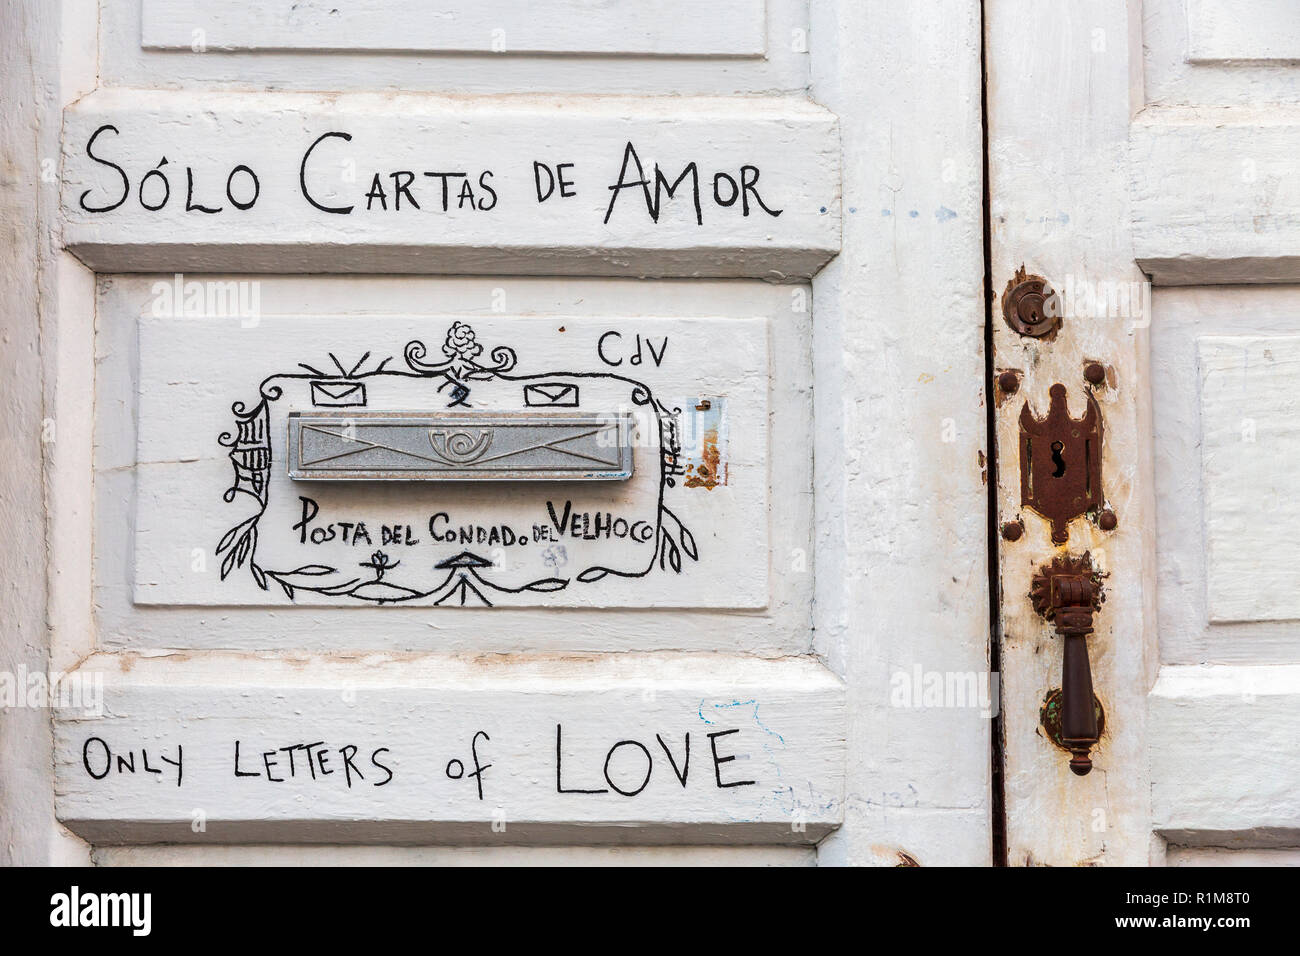 SÓLO CARTAS DE AMOR
CdV
POSTA DEL CONDADO DEL VELHOCO
ONLY LETTERS of LOVE
alamy stock photo
Image ID: R1M8T0
www.alamy.com